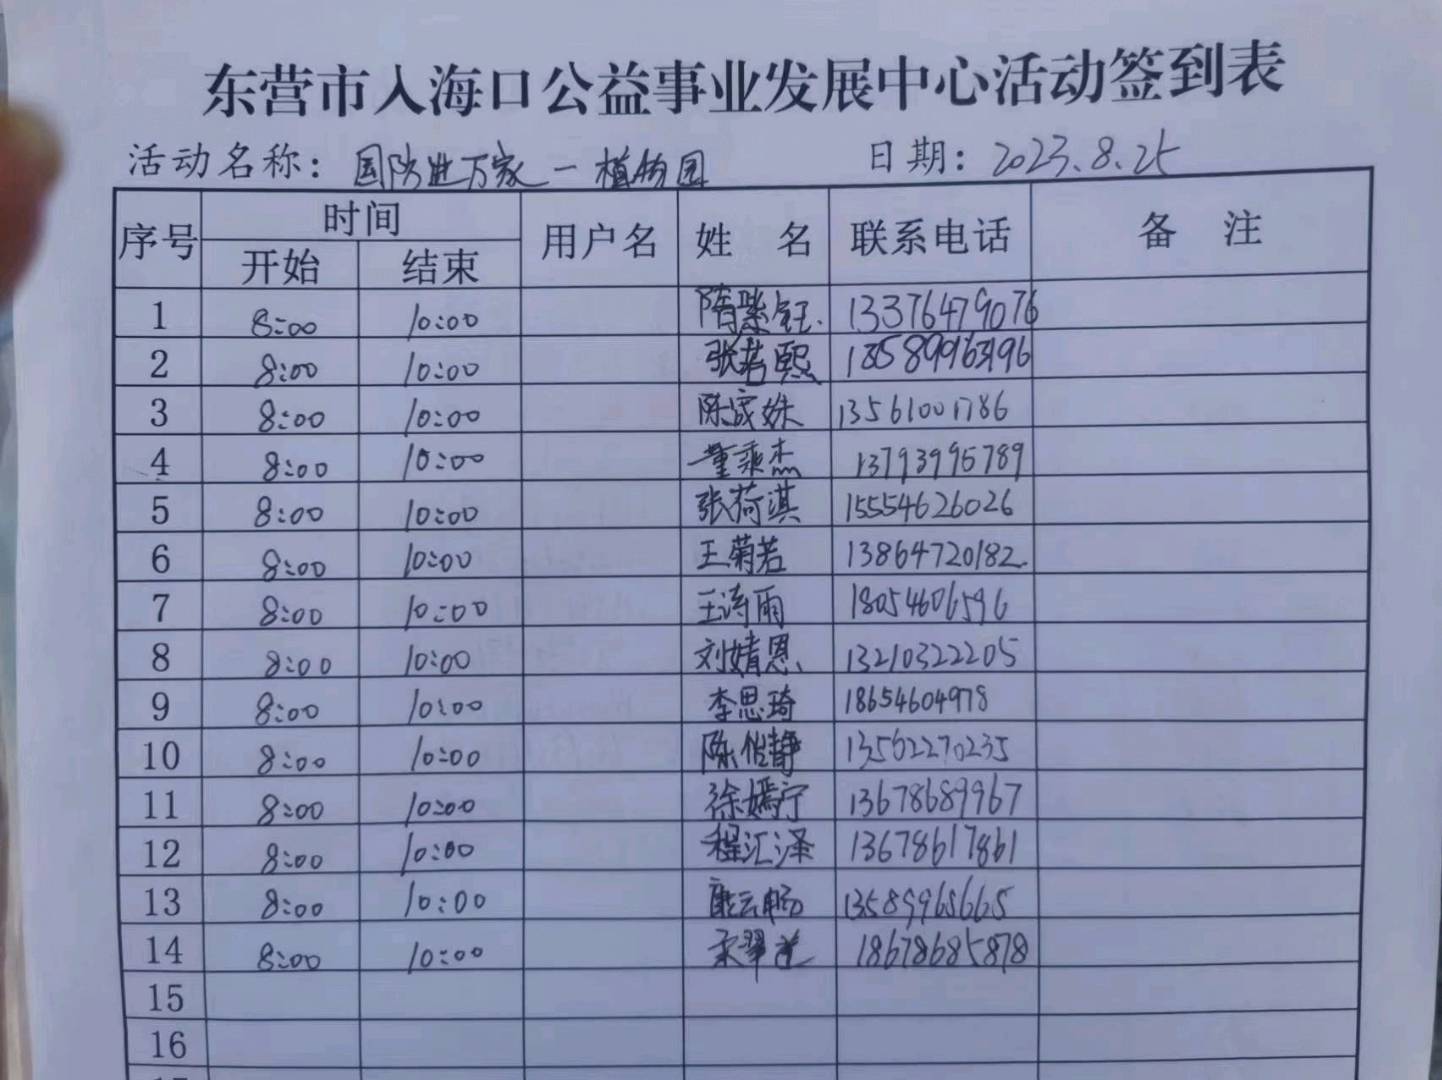 东营市入海口公益事业发展中心活动签到表
活动名称：国防进万家一植物园 日期：2023.8.25
序号 时间 用户名 姓 名 联系电话 备 注
开始 结束
1 8:00 10:00 隋紫钰 13376479076
2 8:00 10:00 张若熙
3 8:00 10:00 陈宬姝 13561001786
4 8:00 10:00 董乘杰 13793995789
5 8:00 10:00 张荷淇 15554626026
6 8:00 10:00 王菊若 13864720182
7 8:00 10:00 王涛雨 18054606596
8 8:00 10:00 刘婧恩 13210322205
9 8:00 10:00 李思琦 18654604978
10 8:00 10:00 13562270235
11 8:00 10:00 徐嫣宁 13678689967
12 8:00 10:00 程汇泽 13678617861
13 8:00 10:00 13589965665
14 8:00 10:00 18678685878
15
16